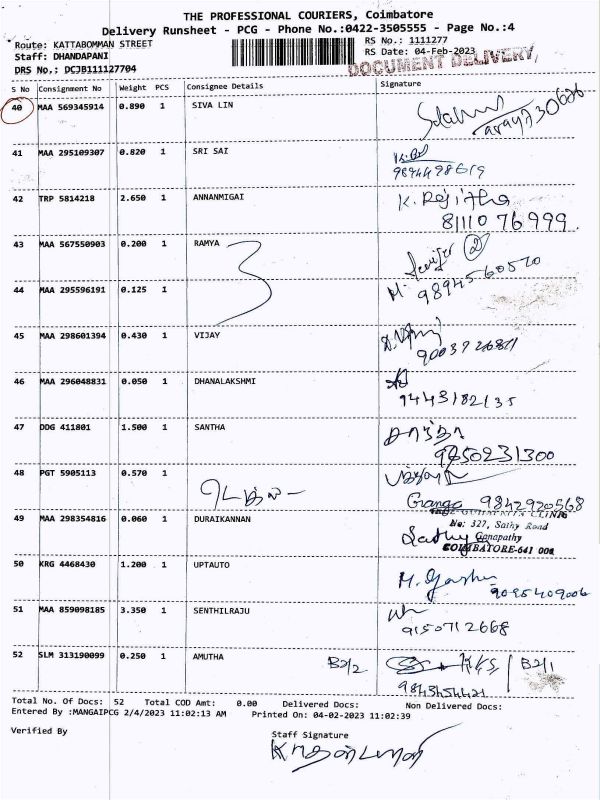 THE PROFESSIONAL COURIERS, Coimbatore
Delivery Runsheet - PCG - Phone No.:0422-3505555 - Page No.:4
Route: KATTABOMMAN STREET
Staff: DHANDAPANI
DRS No.: DCJB111127704
RS No.: 1111277
RS Date: 04-Feb-2023
DOCUMENT DELIVERY,
S No Consignment No Weight PCS Consignee Details Signature
40 MAA 569345914 0.890 1 SIVA LIN
41 MAA 295109307 0.820 1 SRI SAI
9894498619
42 TRP 5814218 2.650 1 ANNANMIGAI K. Rejitha
8111076999
43 MAA 567550903 0.200 1 RAMYA 2
9894560570
44 MAA 295596191 0.125 1
45 MAA 298601394 0.430 1 VIJAY
9003726811
46 MAA 296048831 0.050 1 DHANALAKSHMI
9443182135
47 DDG 411801 1.500 1 SANTHA சாந்தா
9850231300
48 PGT 5905113 0.570 1
Ganga 9842920568
49 MAA 298354816 0.060 1 DURAIKANNAN
No: 327, Sathy Road
Ganapathy
COIMBATORE-641 006
50 KRG 4468430 1.200 1 UPTAUTO
9095409006
51 MAA 859098185 3.350 1 SENTHILRAJU
9150712668
52 SLM 313190099 0.250 1 AMUTHA B2/2 B2/1
Total No. Of Docs: 52 Total COD Amt: 0.00 Delivered Docs: Non Delivered Docs:
Entered By :MANGAIPCG 2/4/2023 11:02:13 AM Printed On: 04-02-2023 11:02:39
Verified By Staff Signature